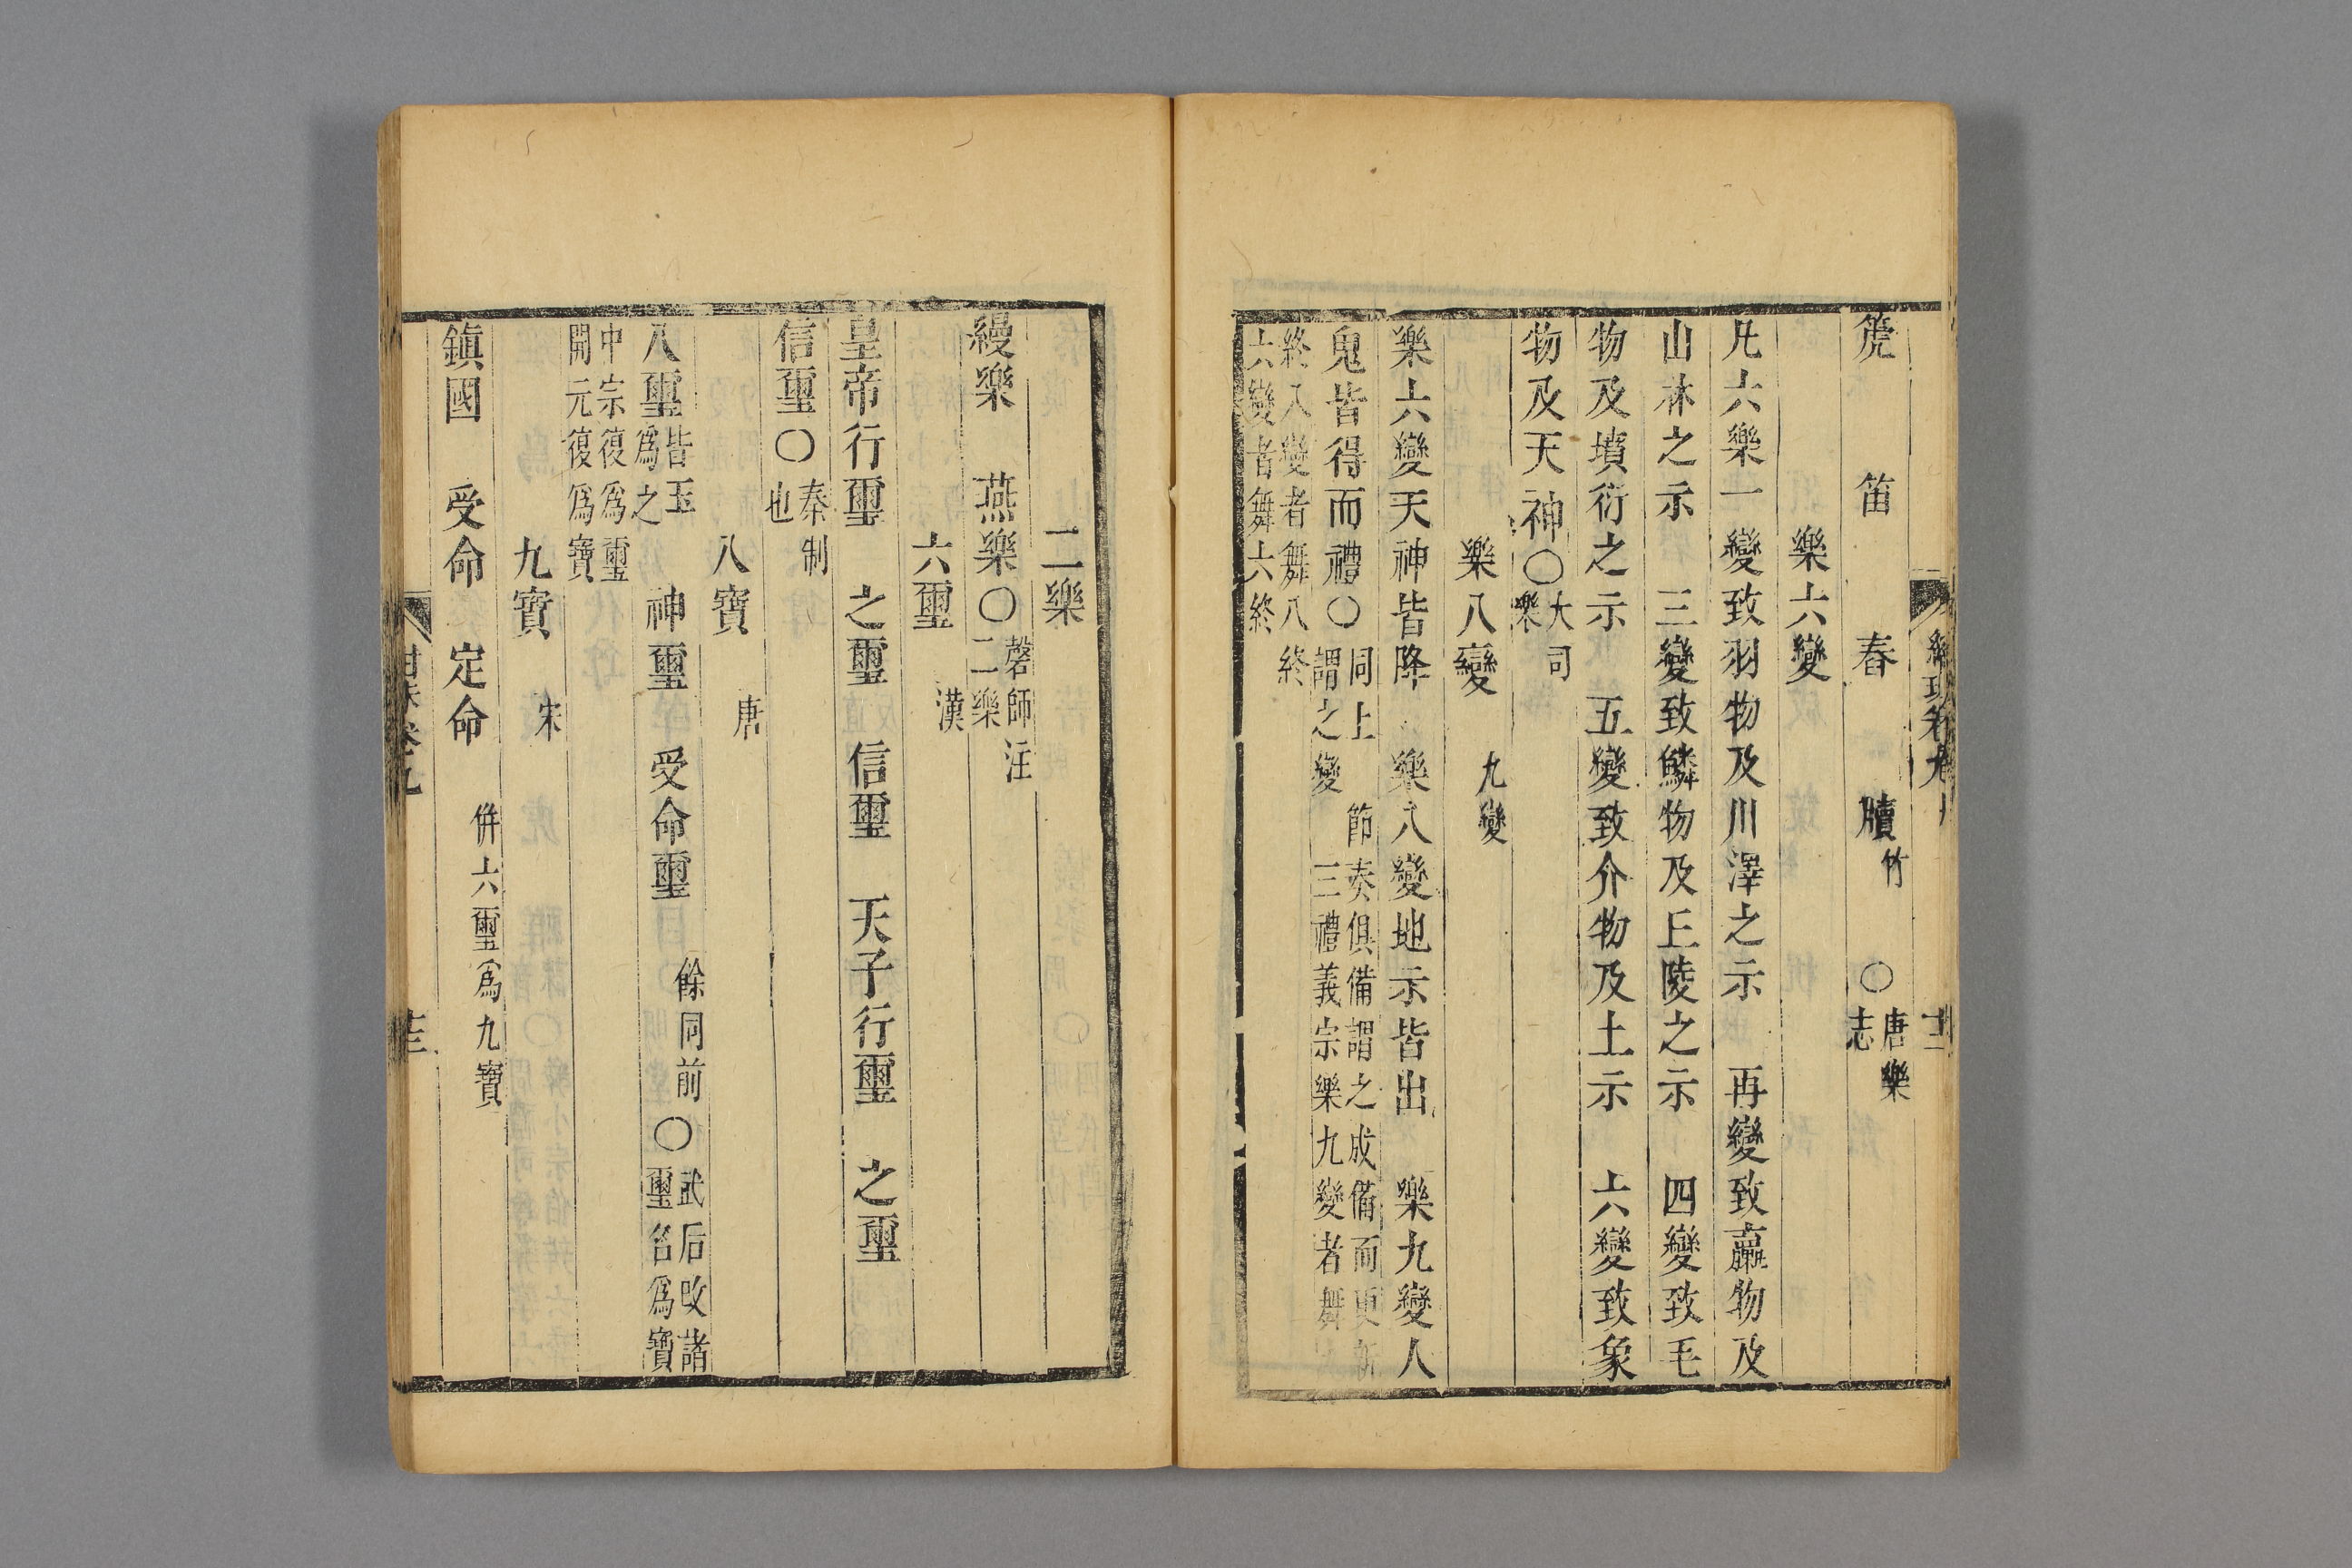 箎　笛　舂　牘竹　〇唐樂志
樂六變
凡六樂一變致羽物及川澤之示　再變致臝物及
山林之示　三變致鱗物及丘陵之示　四變致毛
物及墳衍之示　五變致介物及土示　六變致象
物及天神〇大司樂
樂八變　九變
樂六變天神皆降　樂八變地示皆出　樂九變人
鬼皆得而禮〇同上　節奏俱備謂之成備而更新謂之變　三禮義宗樂九變者舞
終八變者舞八終六變者舞六終
二樂
縵樂　燕樂〇磬師注二樂
六璽　漢
皇帝行璽　之璽　信璽　天子行璽　之璽
信璽〇秦制也
八寶　唐
八璽皆玉爲之　神璽　受命璽　餘同前〇武后改諸璽名爲寶
中宗復爲璽開元復爲寶
九寶　宋
鎮國　受命　定命　併六璽爲九寶
卷九